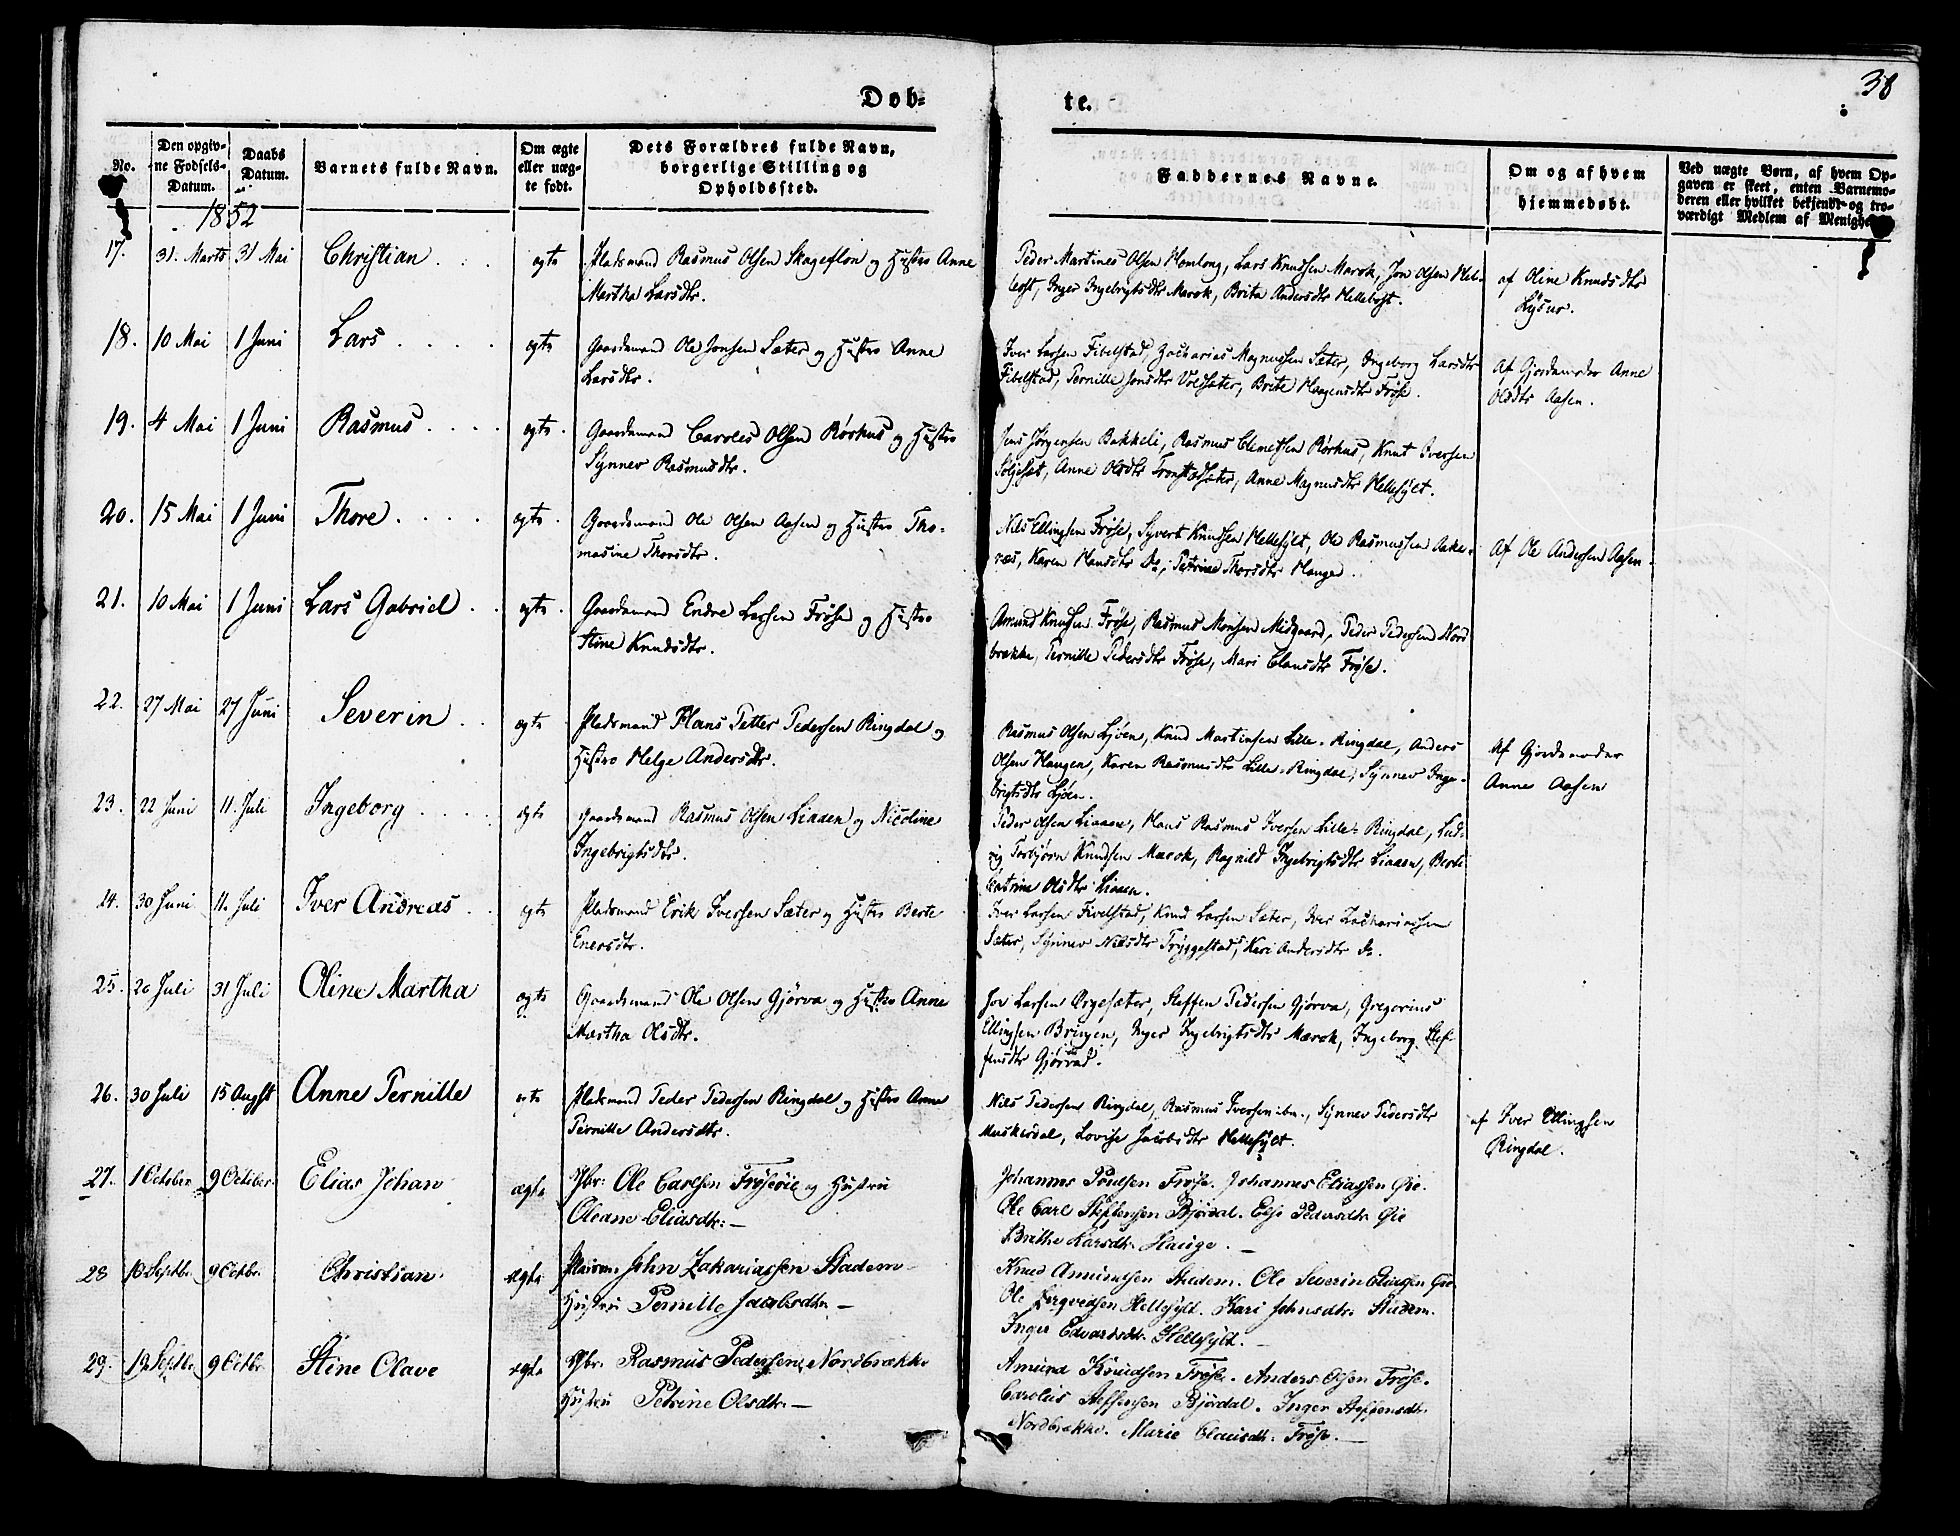 38
Døb-
te.
No.
Den opgivne Fødsels-Datum.
Daabs Datum.
Barnets fulde Navn.
Om ægte eller uægte født.
Dets Forældres fulde Navn, borgerlige Stilling og Opholdssted.
Faddernes Navne.
Om og af hvem hjemmedøbt.
Ved uægte Børn, af hvem Opgaven er skeet, enten Barnemoderen eller hvilket bekjendt og troværdigt Medlem af
1852
17. 31. Marts 31 Mai Christian . . . egte Pladsmand Rasmus Olsen Skageflon og Hustro Anne
Martha Larsdtr.
Peder Martines Olsen Homlong, Lars Knudsen Marok, Jon Olsen Hel-
lebost, Inger Ingebrigtsdtr Marok, Brita Andersdtr Hellebost.
af Oline Knudsdtr
18. 10 Mai 1 Juni Lars . . . . ægte Gaardmand Ole Jonsen Sæter og Hustro Anne
Larsdtr.
Iver Larsen Fibelstad, Zacharias Magnussen Sæter, Ingeborg Larsdtr
Fibelstad, Pernille Jonsdtr Volsæter, Brite Haagensdtr Frøse.
Af Gjordemoder Anne
Olsdtr Aasen.
19. 4 Mai 1 Juni Rasmus . . . . ægte. Gaardmand Carolus Olsen Rørhus og Hustro
Synnev Rasmusdtr.
Jens Jørgensen Bakkeli, Rasmus Clemetsen Rørhus, Knut Iversen
Anne Olsdtr Tronstadsæter, Anne Magnusdtr Hellesylt.
20. 15 Mai 1 Juni Thore . . . . ægte. Gaardsmand Ole Olsen Aasen og Hustro Tho-
masine Thorsdtr.
Nils Ellingsen Frøse, Syvert Knudsen Hellesylt, Ole Rasmussen Aake-
næs, Karen Hansdtr Do, Petrine Thorsdtr Haugen.
Af Ole Andersen Aasen.
21. 10 Mai 1 Juni Lars Gabriel . . ægte. Gaardmand Endre Larsen Frøse og Hustro
Stine Knudsdtr.
Amund Knudsen Frøse, Rasmus Monsen Midgaard, Peder Pedersen Nord
brække, Pernille Pedersdtr Frøse, Mari Clausdtr Frøse.
22. 27 Mai 27 Juni Severin . . ægte Pladsmand Hans Petter Pedersen Ringdal og
Hustro Helge Andersdtr.
Rasmus Olsen Ljøen, Knud Martinsen Lille-Ringdal, Anders
Olsen Haugen, Karen Rasmusdtr Lille-Ringdal, Synnev Inge-
brigtsdtr Ljøen.
Af Gjordemoder
Anne Aasen
23. 22 Juni 11. Juli Ingeborg . . . . ægte Gaardsmand Rasmus Olsen Liaaen og Nicoline
Ingebrigtsdtr.
Peder Olsen Liaaen, Hans Rasmus Iversen Lille-Ringdal, Lud-
vig Torbjørn Knudsen Marok, Ragnild Ingebrigtsdtr Liaaen, Berte
Catrine Olsdtr Liaaen.
24. 30 Juni 11. Juli Iver Andreas . . ægte Pladsmand Erik Iversen Sæter og Hustro Berte
Enersdtr.
Iver Larsen Fivelstad, Knud Larsen Sæter, Iver Zachariassen
Sæter, Synnev Nilsdtr Tryggestad, Kari Andersdtr Do.
25. 20 Juli 31 Juli Oline Martha ægte Gaardsmand Ole Olsen Gjørva og Hustro Anne
Martha Olsdtr.
Jon Larsen Ørgesæter, Steffen Pedersen Gjørva, Gregorius
Ellingsen Bringen, Inger Ingebrigtsdtr Marok, Ingeborg Stef-
fensdtr Gjørvad.
26. 30 Juli 15 Augst Anne Pernille egte Pladsmand Peder Pedersen Ringdal og Hustro Anne
Pernille Andersdtr.
Nils Pedersen Ringdal, Rasmus Iversen ibm., Synnev Pedersdtr
Muskerdal, Lovise Jacobsdtr Hellesylt.
af Iver Ellingsen
Ringdal.
27. 1 October 9 October Elias Johan ægte Gbr: Ole Carlsen Frøseøie og Hustru
Oleane Eliasdtr: —
Johannes Poulsen Frøse. Johannes Eliassen Øie.
Ole Carl Steffensen Bjørdal. Else Pedersdtr. Øie
Brithe Larsdtr. Hauge. —
28 10 Septbr. 9 Octbr. Christian. ægte Pladsm: John Zakariassen Stadem—
Hustru Pernille Jacobsdtr. —
Knud Amundsen Stadem. Ole Severin Eliassen Øie
Ole Hellesyld. Kari Johnsdtr: Stadem.
Inger Edvardsdtr. Hellesyld. —
29. 19 Septbr. 9 Octbr. Stine Olave ægte Gbr. Rasmus Pedersen Nordbrække
Hustru Petrine Olsdtr. —
Amund Knudsen Frøse. Anders Olsen Frøse.
Carolus Steffensen Bjørdal. Inger Steffensdtr.
Nordbrække. Marie Clausdtr. Frøse. —